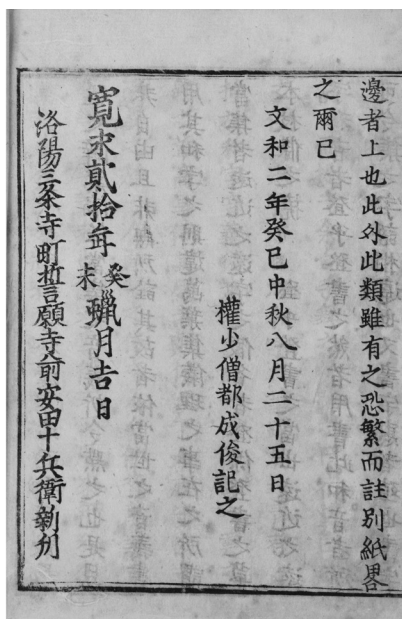 邊者上也此外此類雖有之恐繁而註別紙畧
之爾已
文和二年癸巳中秋八月二十五日
權少僧都成俊記之
寛永貳拾年癸未臘月吉日
洛陽三条寺町誓願寺前安田十兵衞新刋